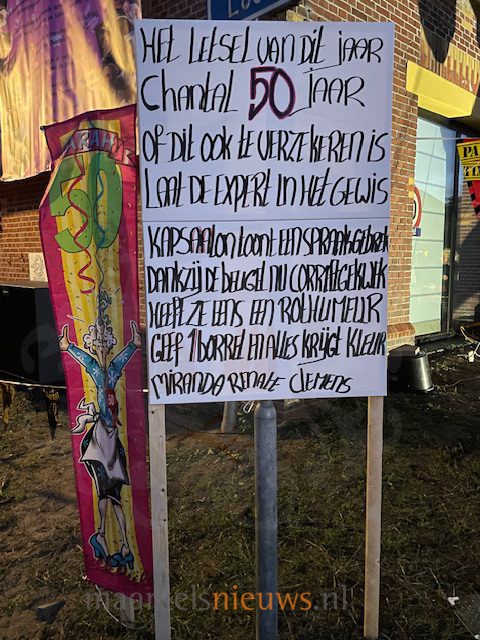 HET LETSEL VAN DIT JAAR
CHANTAL 50 JAAR
OF DIT OOK TE VERZEKEREN IS
LAAT DE EXPERT IN HET GEWIS
KAPSAALON LOONT EEN SPRAAKGEBREK
DANKZIJ DE BEUGEL NU CORRECT GEKWEK
HEEFT ZE EENS EEN ROTHUMEUR
GEEF 1 BORREL EN ALLES KRIJGT KLEUR
MIRANDA RENATE CLEMENS
SARAH
50
maarkelsnieuws.nl